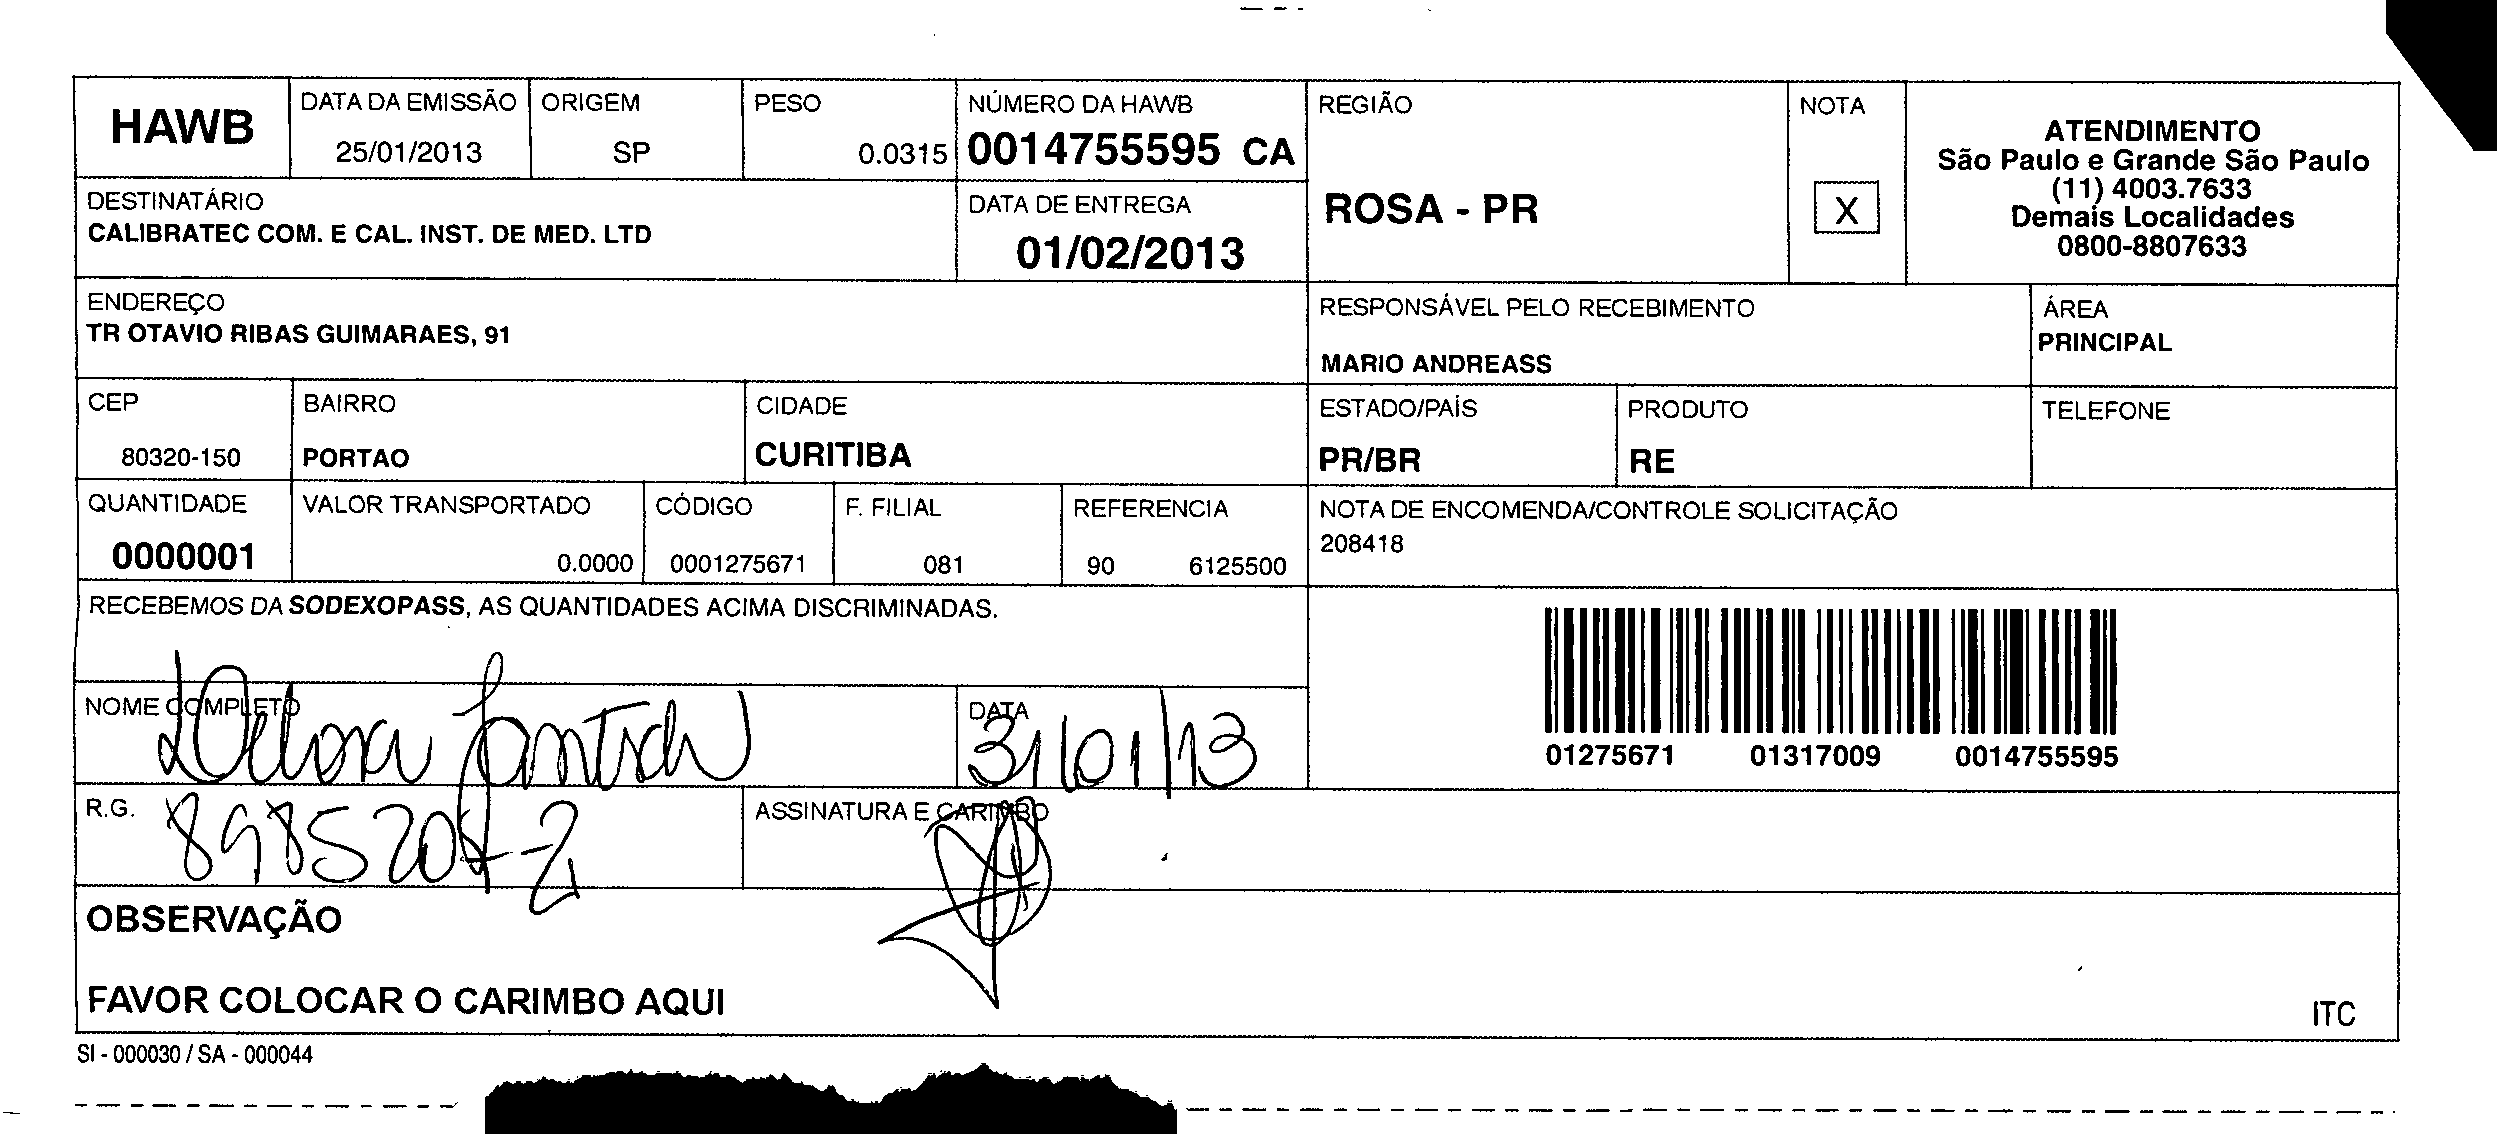 HAWB
DATA DA EMISSÃO
25/01/2013
ORIGEM
SP
PESO
0.0315
NÚMERO DA HAWB
0014755595 CA
REGIÃO
ROSA - PR
NOTA
X
ATENDIMENTO
São Paulo e Grande São Paulo
(11) 4003.7633
Demais Localidades
0800-8807633
DESTINATÁRIO
CALIBRATEC COM. E CAL. INST. DE MED. LTD
DATA DE ENTREGA
01/02/2013
ENDEREÇO
TR OTAVIO RIBAS GUIMARAES, 91
RESPONSÁVEL PELO RECEBIMENTO
MARIO ANDREASS
ÁREA
PRINCIPAL
CEP
80320-150
BAIRRO
PORTAO
CIDADE
CURITIBA
ESTADO/PAÍS
PR/BR
PRODUTO
RE
TELEFONE
QUANTIDADE
0000001
VALOR TRANSPORTADO
0.0000
CÓDIGO
0001275671
F. FILIAL
081
REFERENCIA
90 6125500
NOTA DE ENCOMENDA/CONTROLE SOLICITAÇÃO
208418
RECEBEMOS DA SODEXOPASS, AS QUANTIDADES ACIMA DISCRIMINADAS.
01275671 01317009 0014755595
NOME COMPLETO
DATA
31/01/13
R.G.
ASSINATURA E CARIMBO
OBSERVAÇÃO
FAVOR COLOCAR O CARIMBO AQUI
ITC
SI - 000030 / SA - 000044